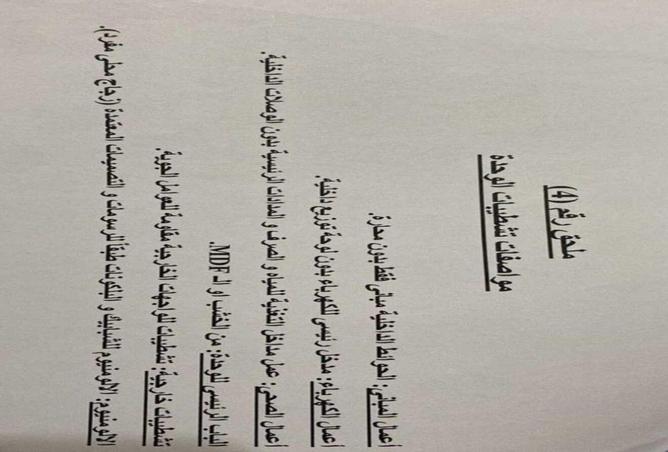 ملحق رقم (4)
مواصفات تشطيبات الوحدة
أعمال المباني: الحوائط الداخلية مباني فقط بدون محارة.
أعمال الكهرباء: مدخل رئيسي للكهرباء بدون لوحة توزيع داخلية.
أعمال الصحي: عمل مداخل التغذية للمياه و الصرف و العدادات الرئيسية بدون الوصلات الداخلية.
الباب الرئيسي للوحدة: من الخشب او الـ MDF.
تشطيبات خارجية: تشطيبات للواجهات الخارجية مقاومة للعوامل الجوية.
الالومنيوم: الالومنيوم للشبابيك و البلكونات طبقاً للرسومات و التصميمات المعتمدة (زجاج محلى مفرد).